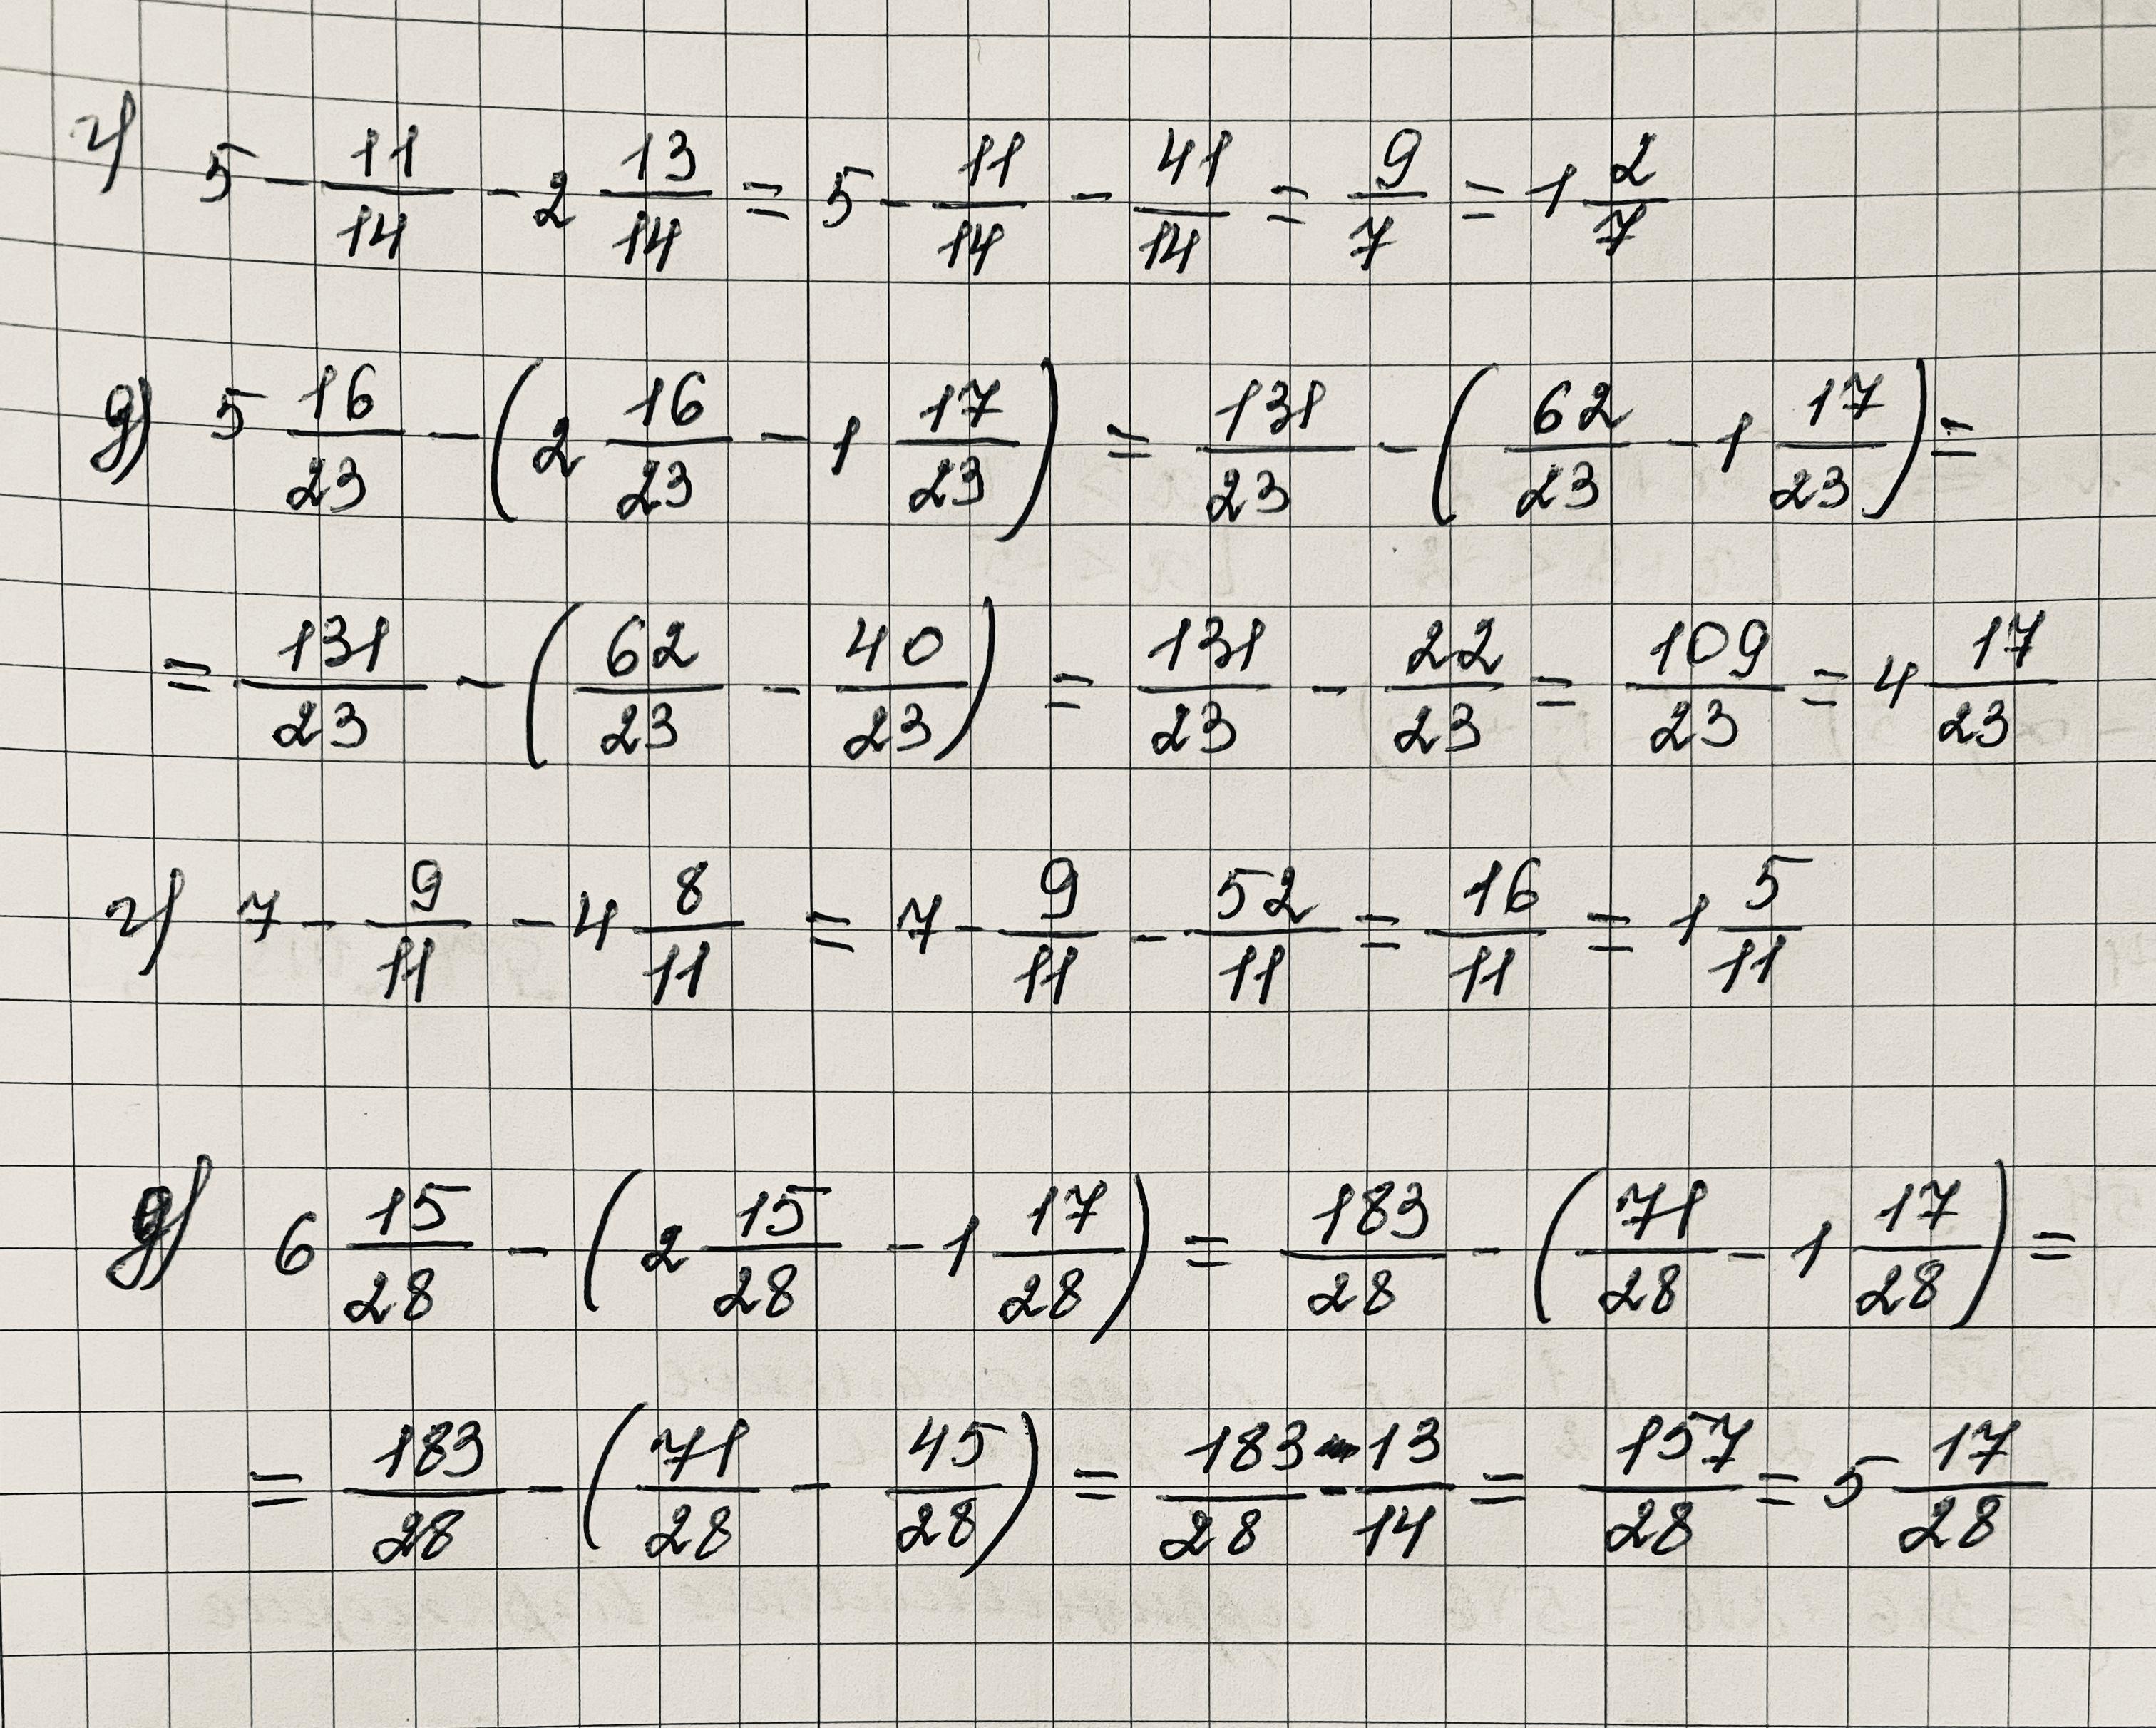 г) 5 - 11/14 - 2 13/14 = 5 - 11/14 - 41/14 = 9/7 = 1 2/7
д) 5 16/23 - (2 16/23 - 1 17/23) = 131/23 - (62/23 - 1 17/23) =
= 131/23 - (62/23 - 40/23) = 131/23 - 22/23 = 109/23 = 4 17/23
г) 7 - 9/11 - 4 8/11 = 7 - 9/11 - 52/11 = 16/11 = 1 5/11
д) 6 15/28 - (2 15/28 - 1 17/28) = 183/28 - (71/28 - 1 17/28) =
= 183/28 - (71/28 - 45/28) = 183/28 - 13/14 = 157/28 = 5 17/28